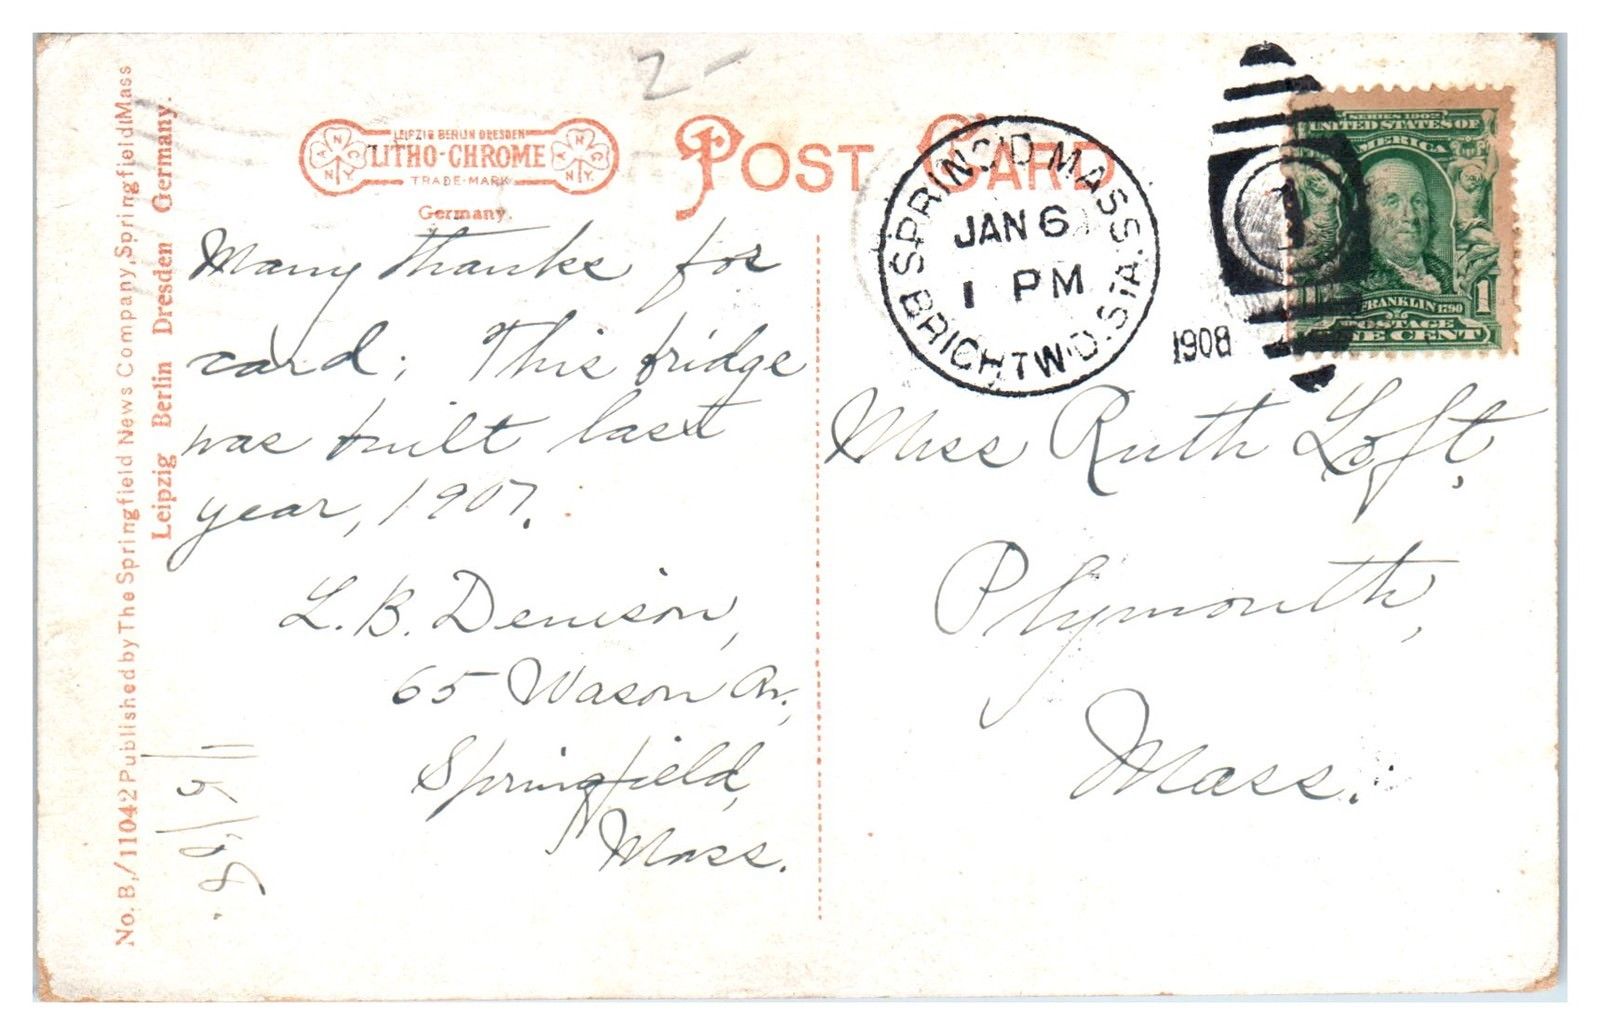 2-
LEIPZIG BERLIN DRESDEN
LITHO-CHROME
TRADE-MARK
Germany.
POST CARD
SPRINGF'D MASS.
JAN 6
1 PM
BRIGHTW'D. STA.
1908
1
SERIES 1902
UNITED STATES OF
AMERICA
FRANKLIN 1790
POSTAGE
ONE CENT
1
Many thanks for
card; This bridge
was built last
year, 1907.
L. B. Denison,
65 Wason Av.,
Springfield,
Mass.
Miss Ruth Loft,
Plymouth,
Mass.
No. B,/11042 Published by The Springfield News Company, Springfield Mass
Leipzig Berlin Dresden Germany.